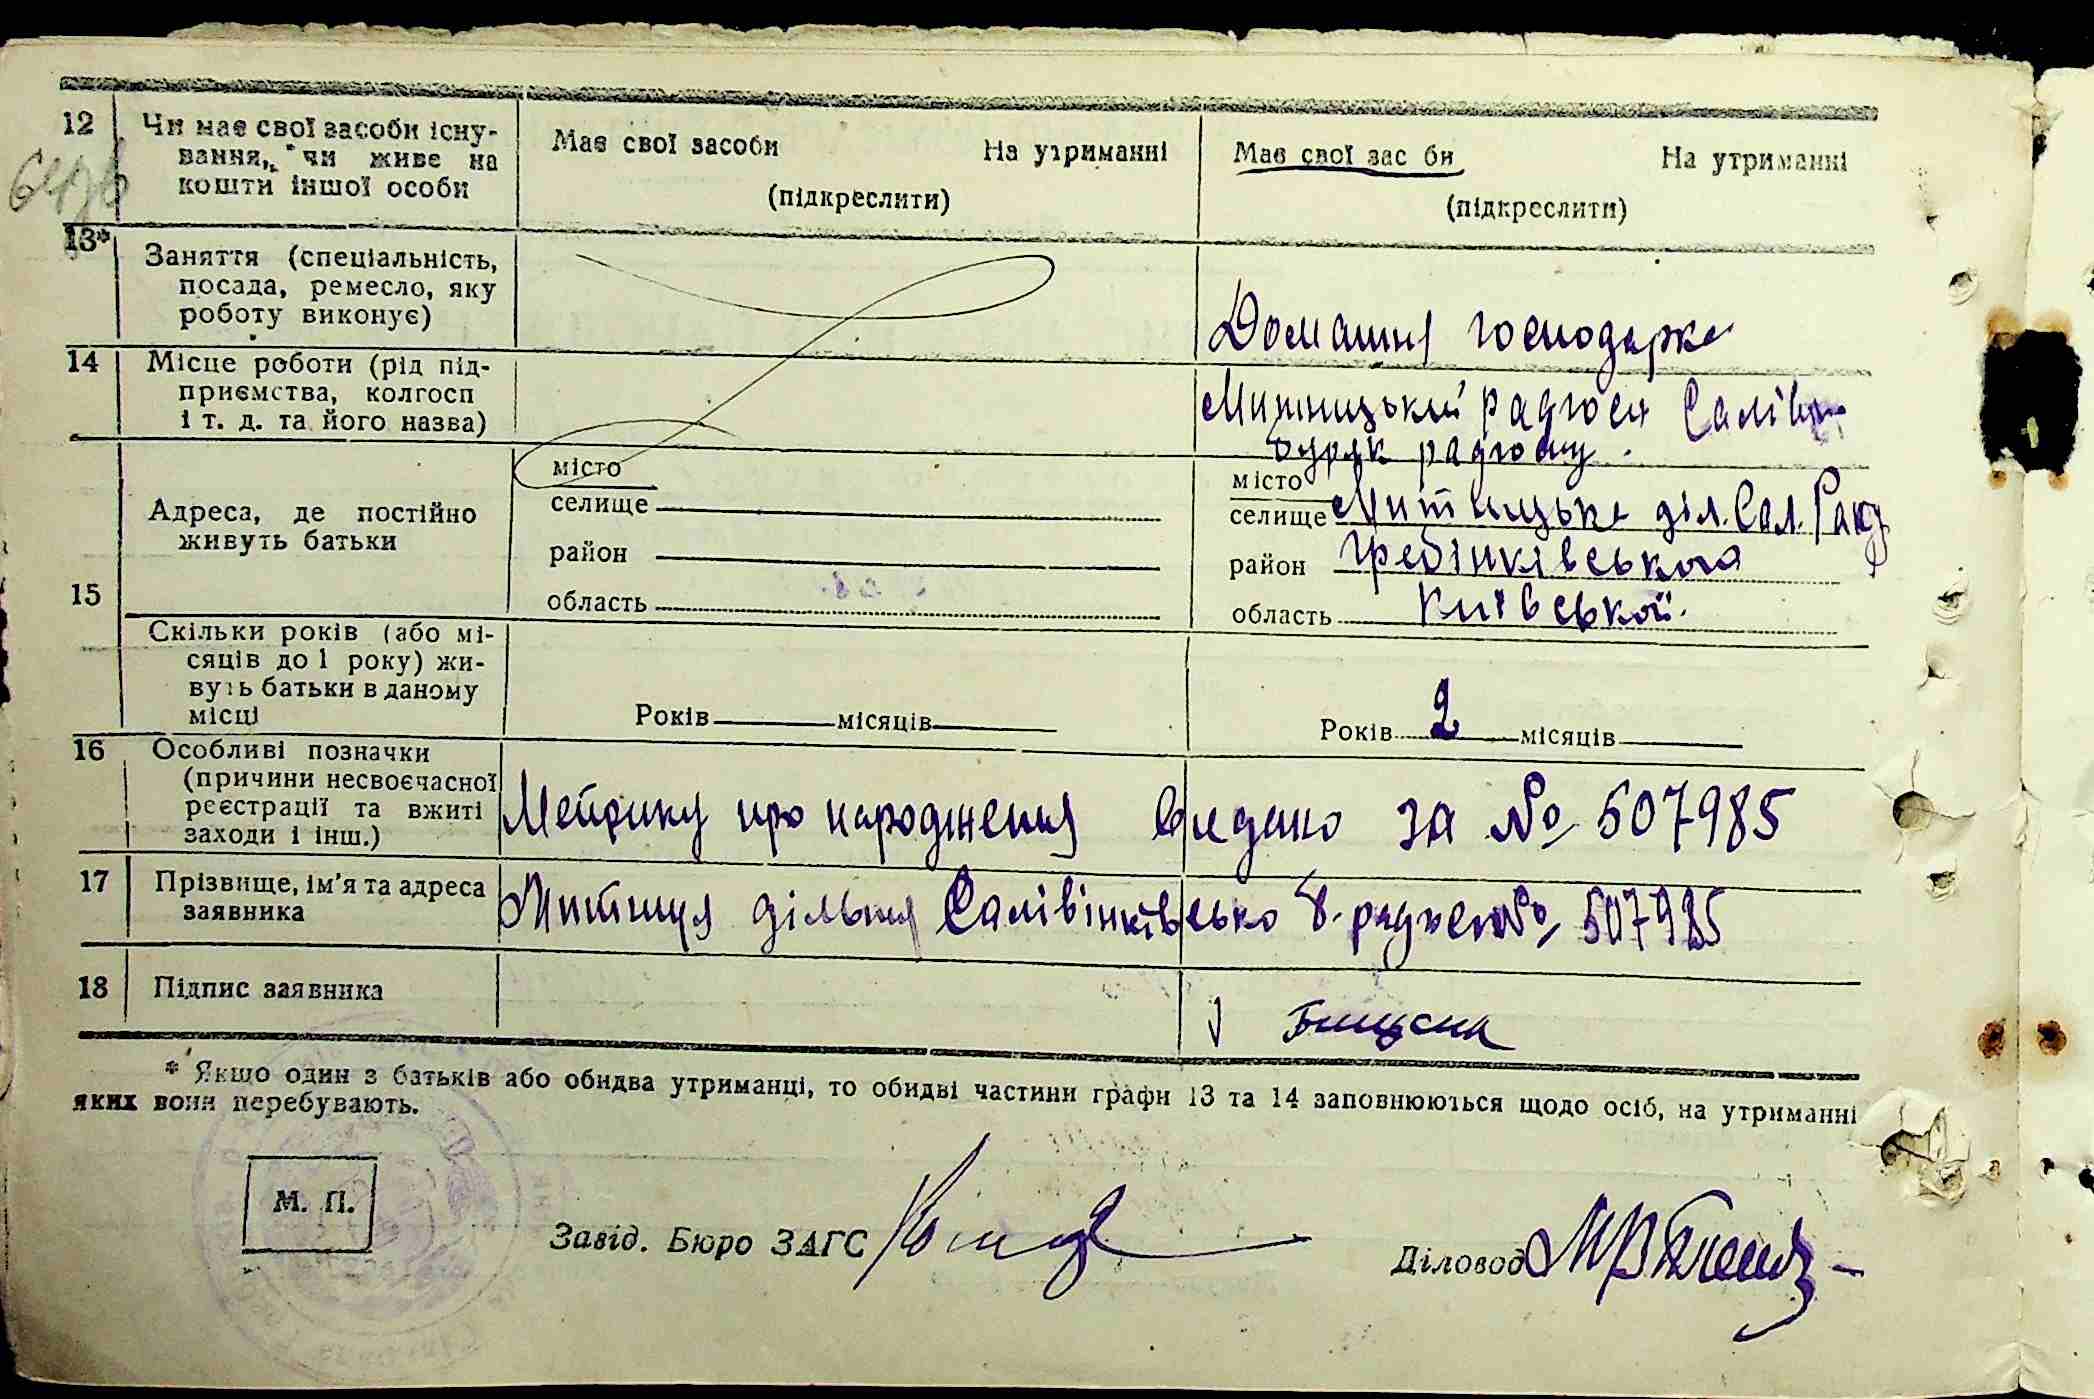 12 Чи має свої засоби існу-
вання, чи живе на
кошти іншої особи
Має свої засоби На утриманні
(підкреслити)
Має свої зас би На утриманні
(підкреслити)
13*
Заняття (спеціальність,
посада, ремесло, яку
роботу виконує)
Домашня господарка
14 Місце роботи (рід під-
приємства, колгосп
і т. д. та його назва)
Митницький радгосп
буряк радгоспу
15
Адреса, де постійно
живуть батьки
місто
селище
район
область
місто
селище Митницька діл. Сал. Рад
район Гребінківського
область Київської
Скільки років (або мі-
сяців до 1 року) жи-
вуть батьки в даному
місці
Років місяців
Років 2 місяців
16 Особливі позначки
(причини несвоєчасної
реєстрації та вжиті
заходи і інш.)
Метрику про народження видано за № 507985
17 Прізвище, ім'я та адреса
заявника
дільня Салівінківсько б. радгосп № 507985
18 Підпис заявника
* Якщо один з батьків або обидва утриманці, то обидві частини графи 13 та 14 заповнюються щодо осіб, на утриманні
яких вони перебувають.
М. П.
Завід. Бюро ЗАГС
Діловод